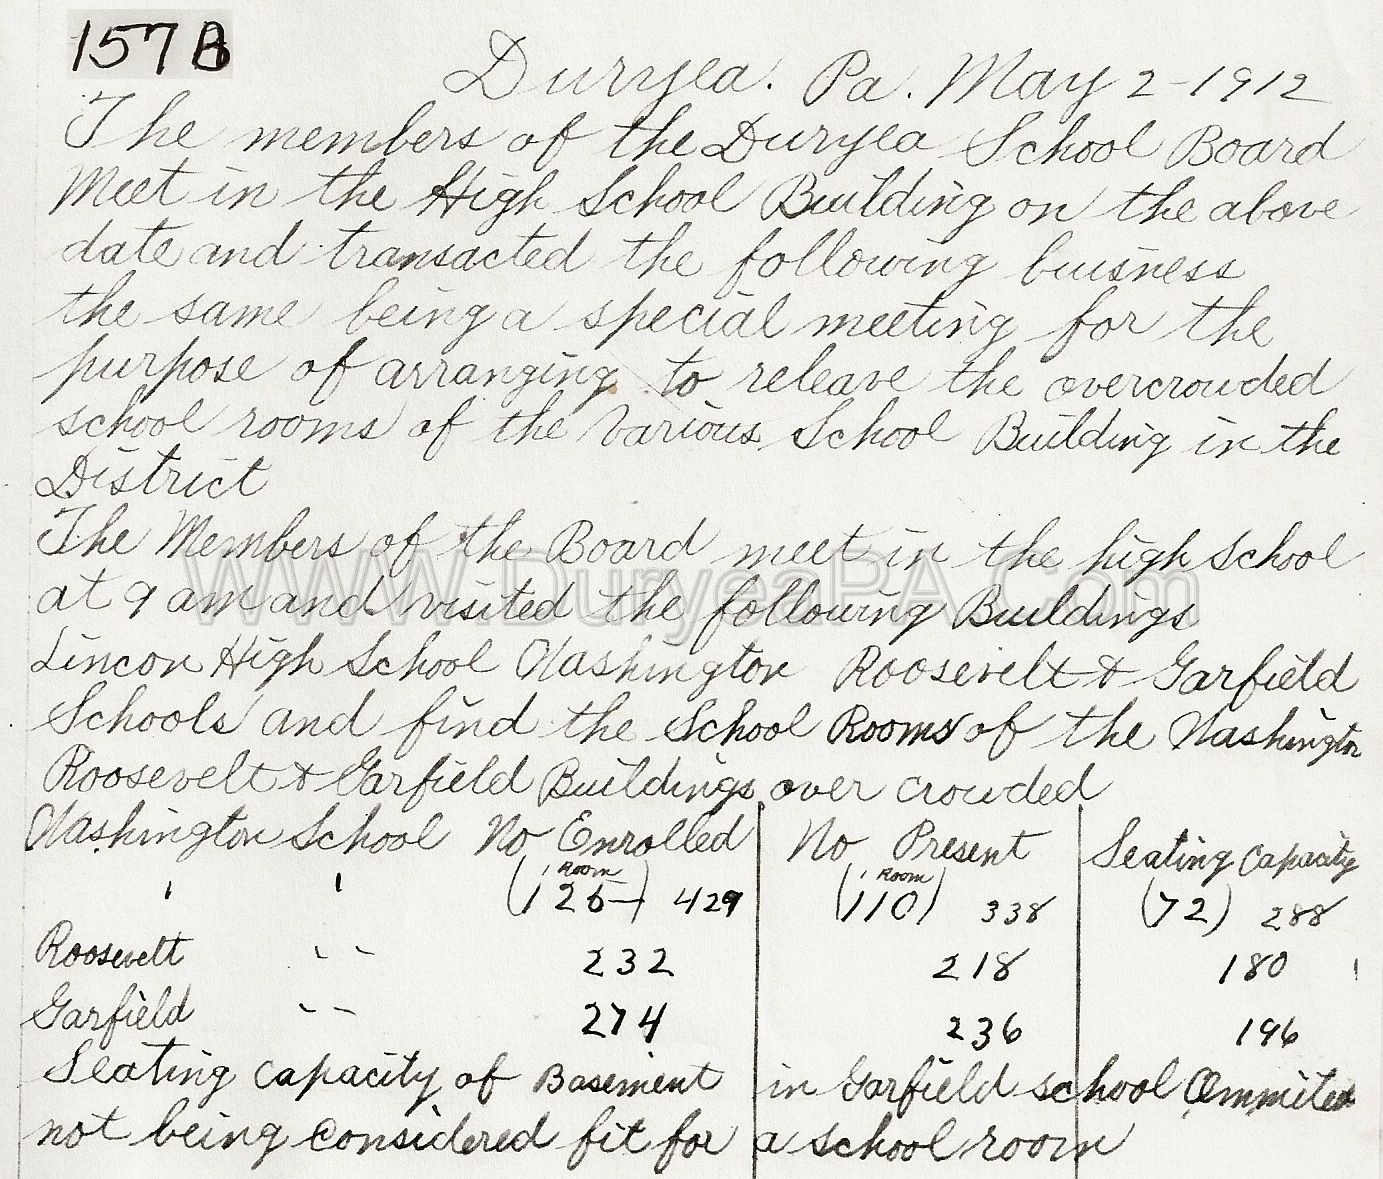 157B
Duryea. Pa. May 2-1912
The members of the Duryea School Board
Meet in the High School Building on the above
date and transacted the following buisness
the same being a special meeting for the
purpose of arranging to releave the overcrowded
school rooms of the various School Building in the
District
The Members of the Board meet in the high school
at 9 am and visited the following Buildings
WWW.DuryeaPA.Com
Lincon High School Washington Roosevelt & Garfield
Schools and find the School Rooms of the Washington
Roosevelt & Garfield Buildings over crowded
Washington School No Enrolled No Present Seating Capacity
1 Room 1 Room
" " (125) 429 (110) 338 (72) 288
Roosevelt " " 232 218 180
Garfield " " 274 236 196
Seating Capacity of Basement in Garfield school Ommited
not being considered fit for a school room